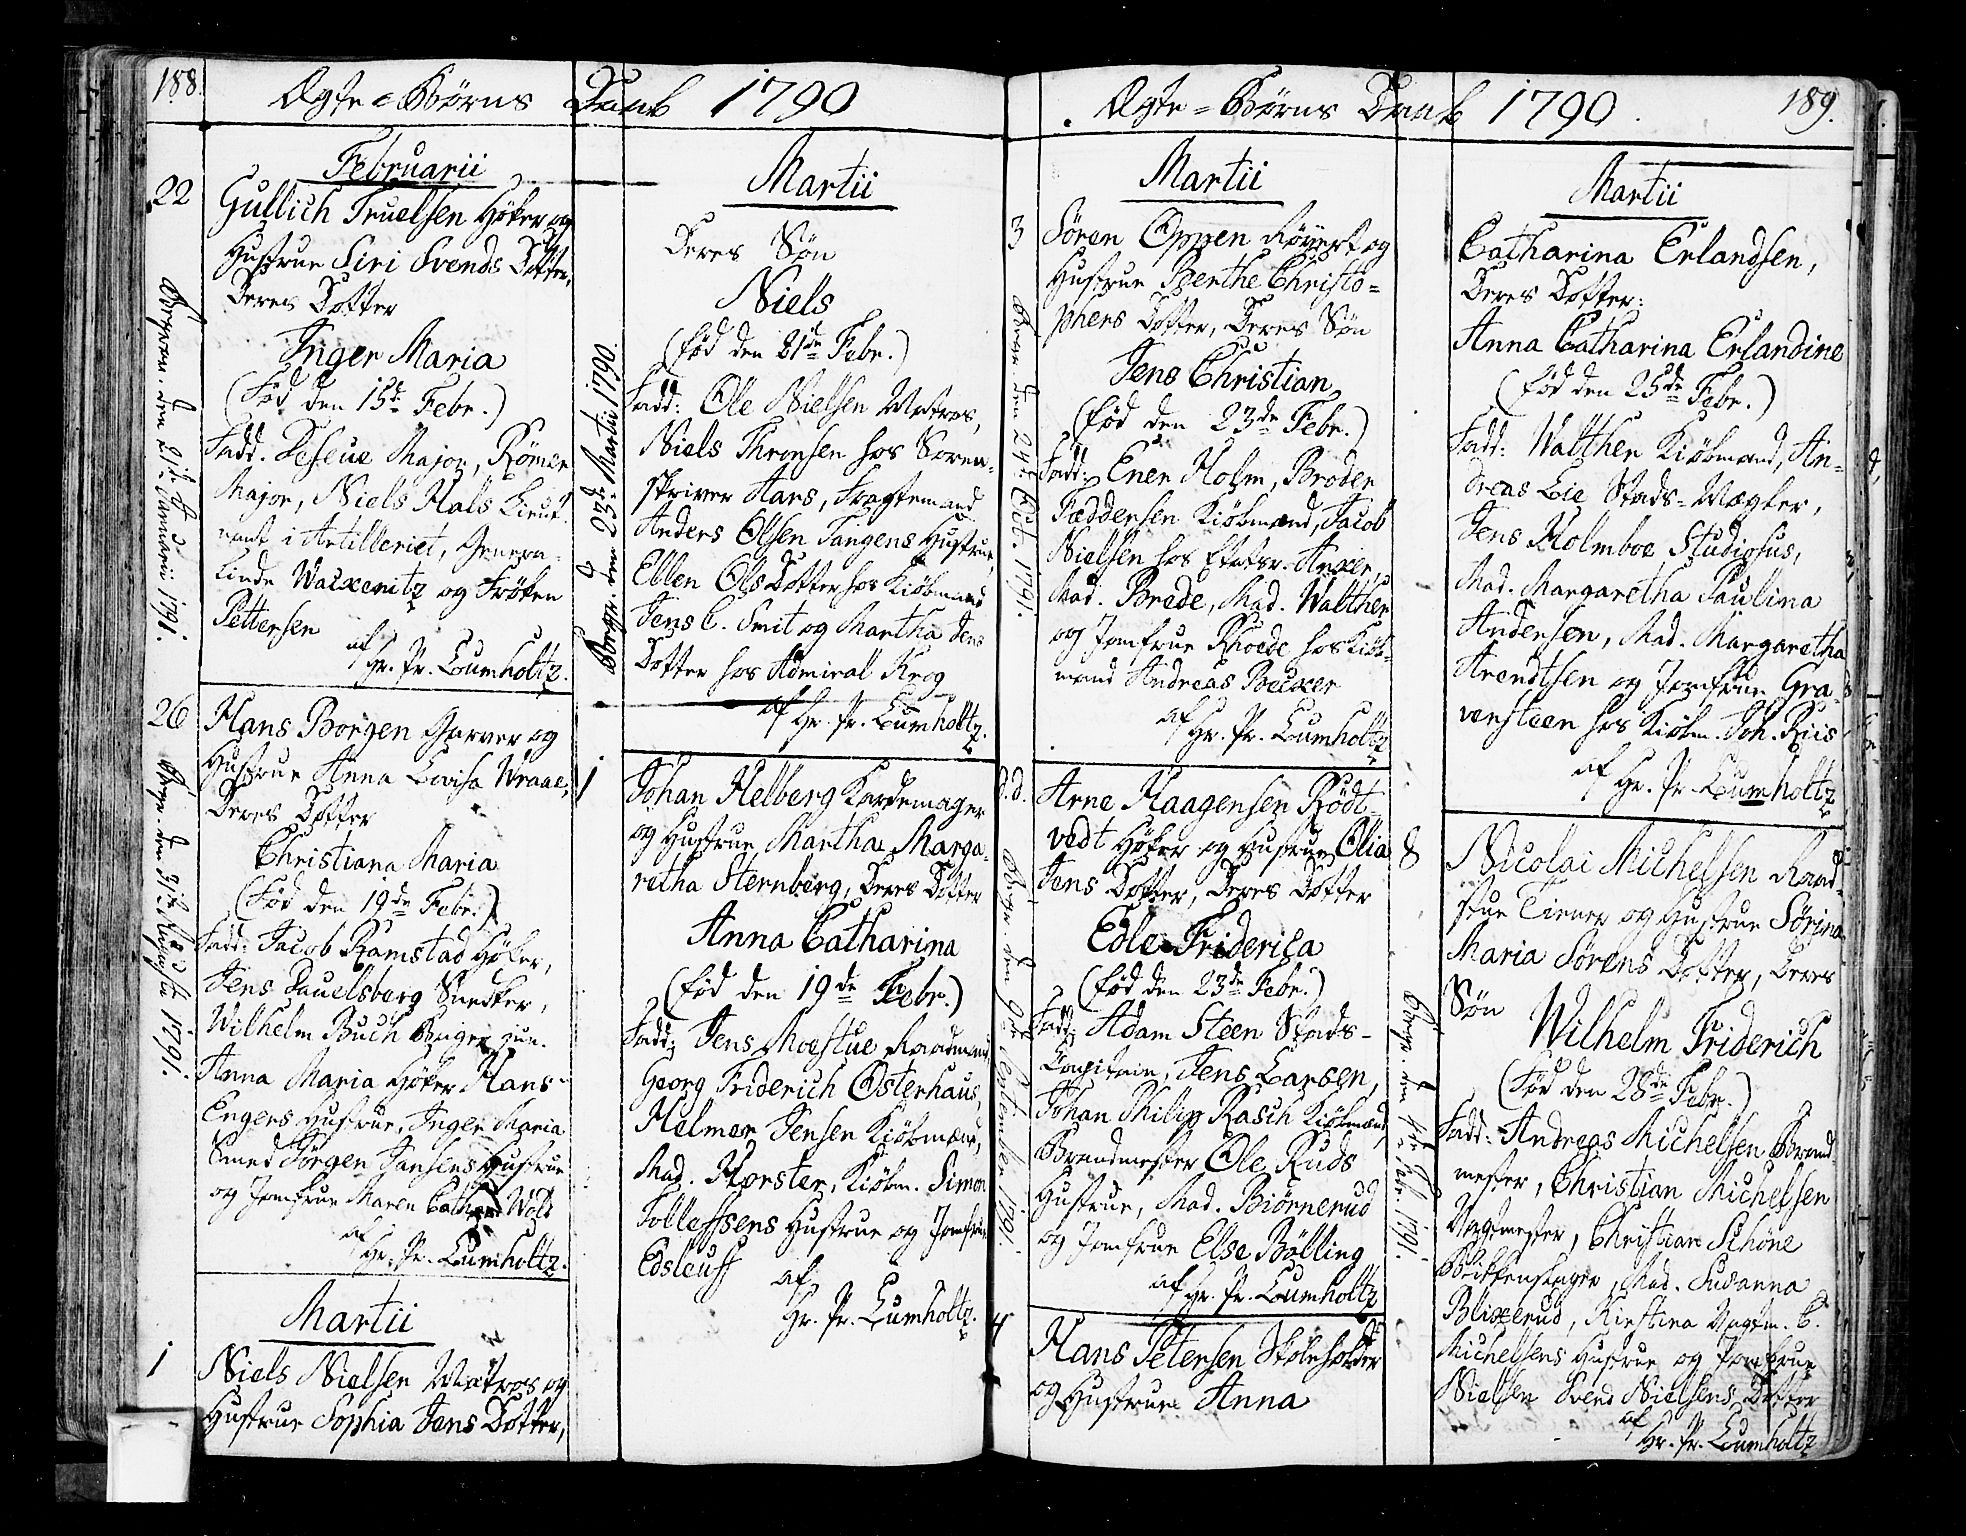 188.
Ægte-Børns Daab 1790
Februarii
22
Gullich Truelsen Höker og
Hustrue Siri Svends Dotter,
Deres Dotter
Inger Maria
(Föd den 15de Febr.)
Fadd. Major, Römer
Major, Niels Hals Lieut-
nant i Artilleriet, Genera-
linde Wackenitz og Fröken
Pettersen
af
Hr. Pr. Lumholtz.
Januarii 1791.
26
Hans Borgen Garver og
Hustrue Anna Lovisa Wraae,
Deres Dotter
Christiana Maria
(Föd den 19de Febr.)
Fadd: Jacob Ramstad Höker,
Jens Pauelsberg Snedker,
Wilhelm Buch Bager jun.
Anna Maria Höker Hans
Engers Hustrue, Inger Maria
Smed Jörgen Jansens Hustrue
og Jomfrue Maren Cathar. Wold
af
Hr. Pr. Lumholtz.
Augusti 1791.
Martii
1
Niels Nielsen Matros og
Hustrue Sophia Jens Dotter,
Martii
Deres Sön
Niels
(föd den 21de Febr.)
Fadd: Ole Nielsen Matros,
Niels Thronsen hos Soren-
skriver Aars, Fragtemand
Anders Olsen Tangens Hustrue,
Ellen Ols Dotter hos Kiöbmand
Jens C. Smit og Martha Jens
Dotter hos Admiral Krog
af Hr. Pr. Lumholtz.
Begr. den 23de Martii 1790.
1
Johan Helberg Kardemager
og Hustrue Martha Marga-
retha Sternberg, Deres Dotter
Anna Catharina
(föd den 19de Febr.)
Fadd: Jens Moestue Raadmand,
Georg Friderich Osterhaus,
Helmer Jensen Kiöbmænd,
Mad. Horster, Kiöbm. Simon
Tollefssens Hustrue og Jomfrue
Edsleuff
af
Hr. Pr. Lumholtz.
189.
Ægte-Börns Daab 1790.
Martii
3
Sören Oppen Röyert og
Hustrue Berthe Christo-
phers Dotter, Deres Sön
Jens Christian
(föd den 23de Febr.)
Fadd: Ener Holm, Broder
Fæddersen Kiöbmænd, Jacob
Nielsen hos Etatsr. Anker,
Mad. Brede, Mad. Walther
og Jomfrue Rhoede hos Kiöb-
mand Andreas Becker
af
Hr. Pr. Lumholtz
Begr. den 24de Oct. 1791.
d.d.
Arne Haagensen Rödt-
vedt Höker og Hustrue Olia
Jens Dotter, Deres Dotter
Edle Friderica
(föd den 23de Febr.)
Fadd: Adam Steen Stads-
Capitain, Jens Larsen,
Johan Philip Rasch Kiöbmænd,
Brandmester Ole Ruds
Hustrue, Mad. Biörnerud
og Jomfrue Else Bölling
af Hr. Pr. Lumholtz
Begr. den 9de September 1791.
4
Hans Petersen Skoleholder
og Hustrue Anna
Martii
Catharina Erlandsen,
Deres Dotter:
Anna Catharina Erlandine
(föd den 25de Febr.)
Fadd: Walther Kiöbmand, An-
dreas Lie Stads-Mægler,
Jens Holmboe Studiosus,
Mad. Margaretha Paulina
Andersen, Mad. Margaretha
Arendtsen og Jomfrue Gra-
versteen hos Kiöbm. Joh. Riis
af
Hr. Pr. Lumholtz
8
Nicolai Michelsen Raad-
stue Tiener og Hustrue Sörina
Maria Sörens Dotter, Deres
Sön
Wilhelm Friderich
(Föd den 28de Febr.)
Fadd: Andreas Michelsen Brand-
mester, Christian Michelsen
Vagtmester, Christian Schöne
Blikkenslager, Mad. Susanna
Blixerud, Kirstina Vagtm. C.
Michelsens Hustrue og Jomfrue
Nielsen Svend Nielsens Dotter
af
Hr. Pr. Lumholtz
Begr. den 1791.